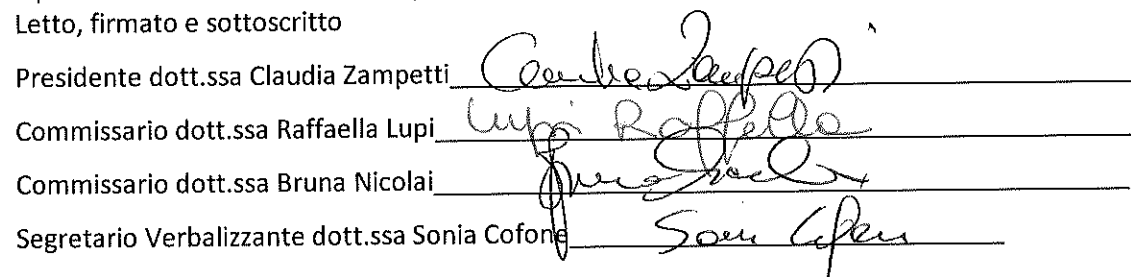 Letto, firmato e sottoscritto
Presidente dott.ssa Claudia Zampetti Claudia Zampetti
Commissario dott.ssa Raffaella Lupi Lupi Raffaella
Commissario dott.ssa Bruna Nicolai
Segretario Verbalizzante dott.ssa Sonia Cofone